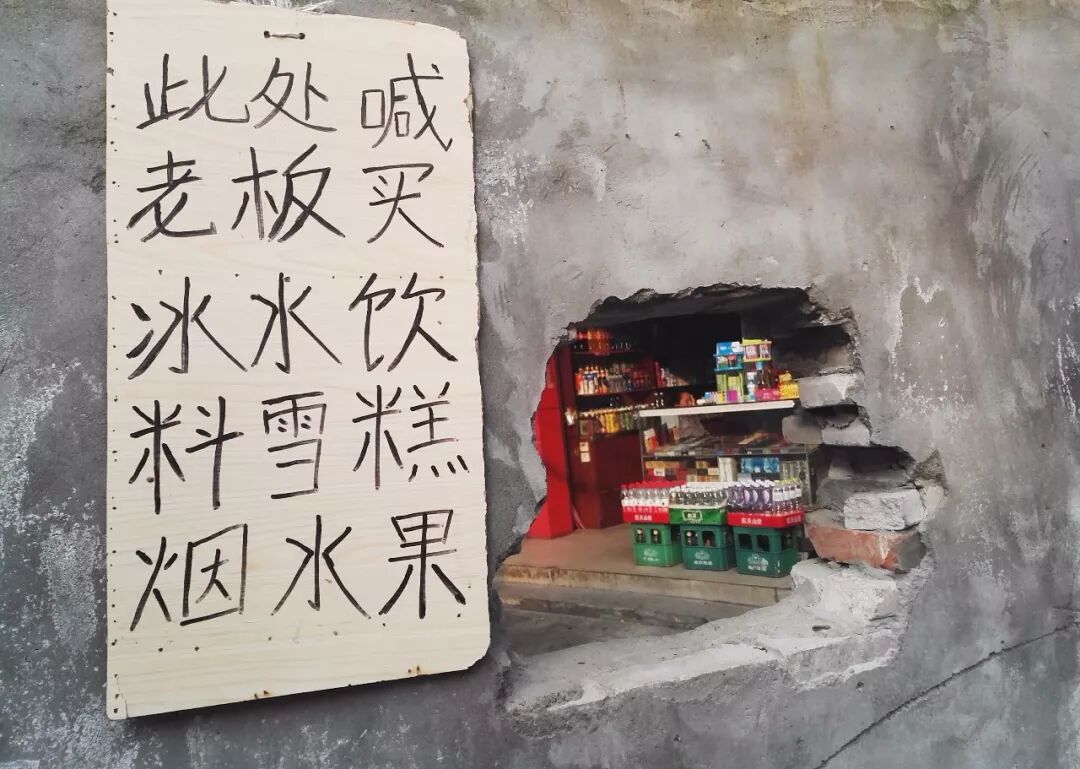 此处喊
老板买
冰水饮
料雪糕
烟水果